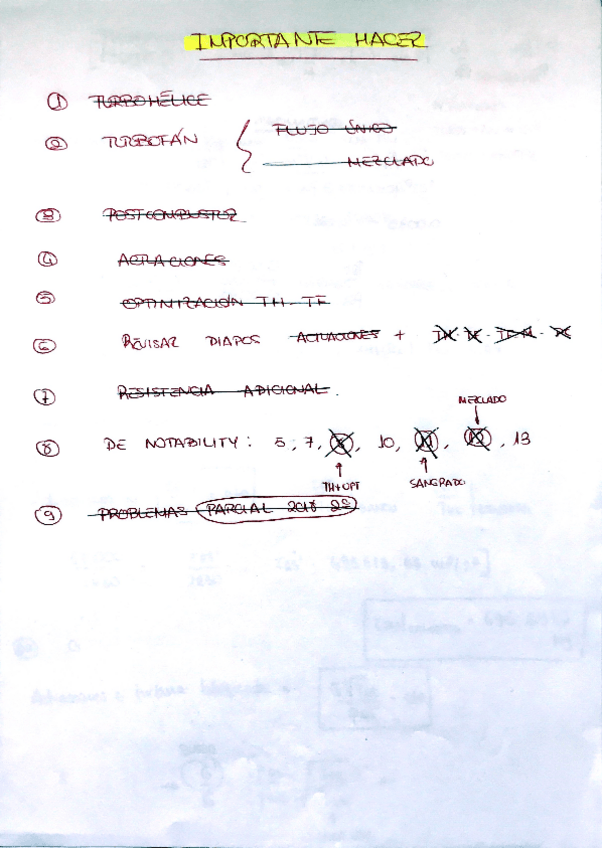 IMPORTANTE HACER
① TURBOHÉLICE
② TURBOFÁN { FLUJO ÚNICO
MEZCLADO
③ POSTCOMBUSTOR
④ ACTUACIONES
⑤ OPTIMIZACIÓN TH - TF
⑥ REVISAR DIAPOS ACTUACIONES +
⑦ RESISTENCIA ADICIONAL.
MEZCLADO
⑧ DE NOTABILITY: 5, 7, 10, 11, 12, 13
TH+OPT SANGRADO
⑨ PROBLEMAS PARCIAL 2018 2º